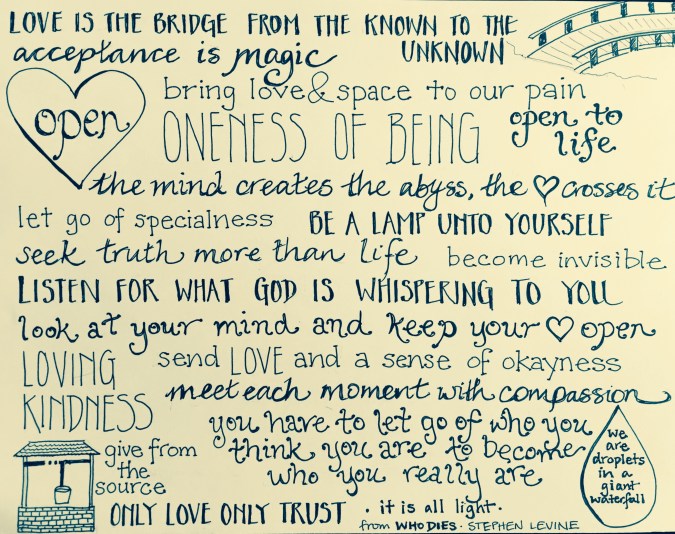 LOVE IS THE BRIDGE FROM THE KNOWN TO THE
UNKNOWN
acceptance is magic
open
bring love & space to our pain
ONENESS OF BEING
open to
life
the mind creates the abyss, the ♡ crosses it
let go of specialness
BE A LAMP UNTO YOURSELF
seek truth more than life
become invisible
LISTEN FOR WHAT GOD IS WHISPERING TO YOU
look at your mind and keep your ♡ open
LOVING
KINDNESS
send LOVE and a sense of okayness
meet each moment with compassion
you have to let go of who you
think you are to become
who you really are
give from
the
source
we
are
droplets
in a
giant
waterfall
ONLY LOVE ONLY TRUST
· it is all light ·
from WHO DIES · STEPHEN LEVINE